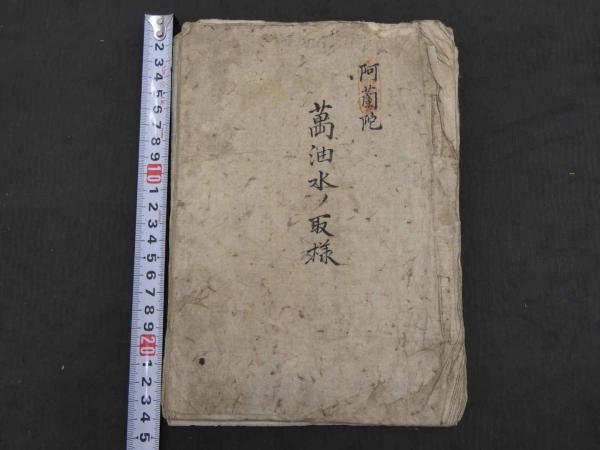 阿蘭陀
萬油水ノ取様
2 3 4 5 6 7 8 9 10 1 2 3 4 5 6 7 8 9 20 1 2 3 4 5